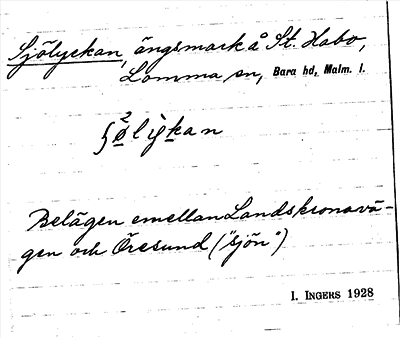 Sjölyckan, ängsmark å St. Habo,
Lomma sn, Bara hd, Malm. l.
Belägen emellan Landskronavä-
gen och Öresund ("sjön")
I. INGERS 1928